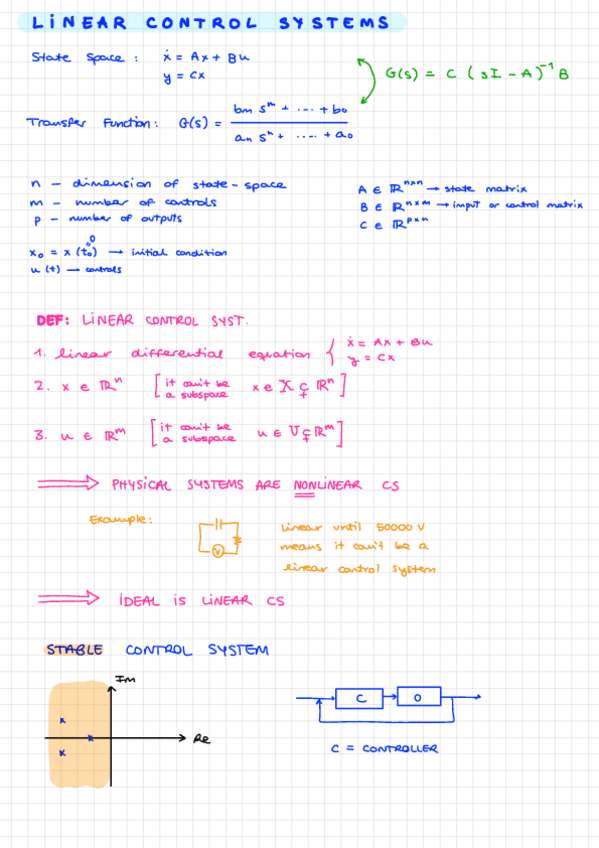 LINEAR CONTROL SYSTEMS
State Space: ẋ = Ax + Bu
y = Cx
G(s) = C (sI - A)⁻¹ B
Transfer Function: G(s) = (bm sᵐ + .... + b₀) / (an sⁿ + .... + a₀)
n - dimension of state-space
m - number of controls
p - number of outputs
A ∈ ℝⁿˣⁿ → state matrix
B ∈ ℝⁿˣᵐ → input or control matrix
C ∈ ℝᵖˣⁿ
0
x₀ = x (t₀) → initial condition
u (t) → controls
DEF: LINEAR CONTROL SYST.
1. linear differential equation { ẋ = Ax + Bu
y = Cx
2. x ∈ ℝⁿ [it can't be a subspace x ∈ X ⊊ ℝⁿ]
3. u ∈ ℝᵐ [it can't be a subspace u ∈ U ⊊ ℝᵐ]
⟹ PHYSICAL SYSTEMS ARE NONLINEAR CS
Example:
V
Linear until 50000 V
means it can't be a
linear control system
⟹ IDEAL IS LINEAR CS
STABLE CONTROL SYSTEM
Im
Re
C
O
C = CONTROLLER